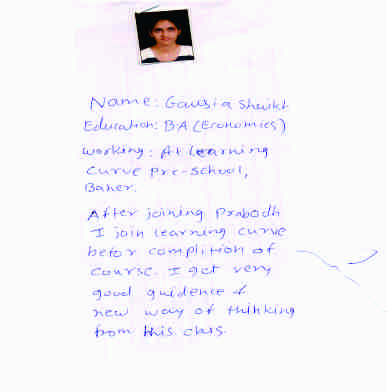 Name: Gausia Shaikh
Education: BA (Economics)
Working: At Learning
Curve Pre-School,
Baner.
After joining Prabodh
I join learning curve
befor complition of
course. I get very
good guidence &
new way of thinking
from this clas.